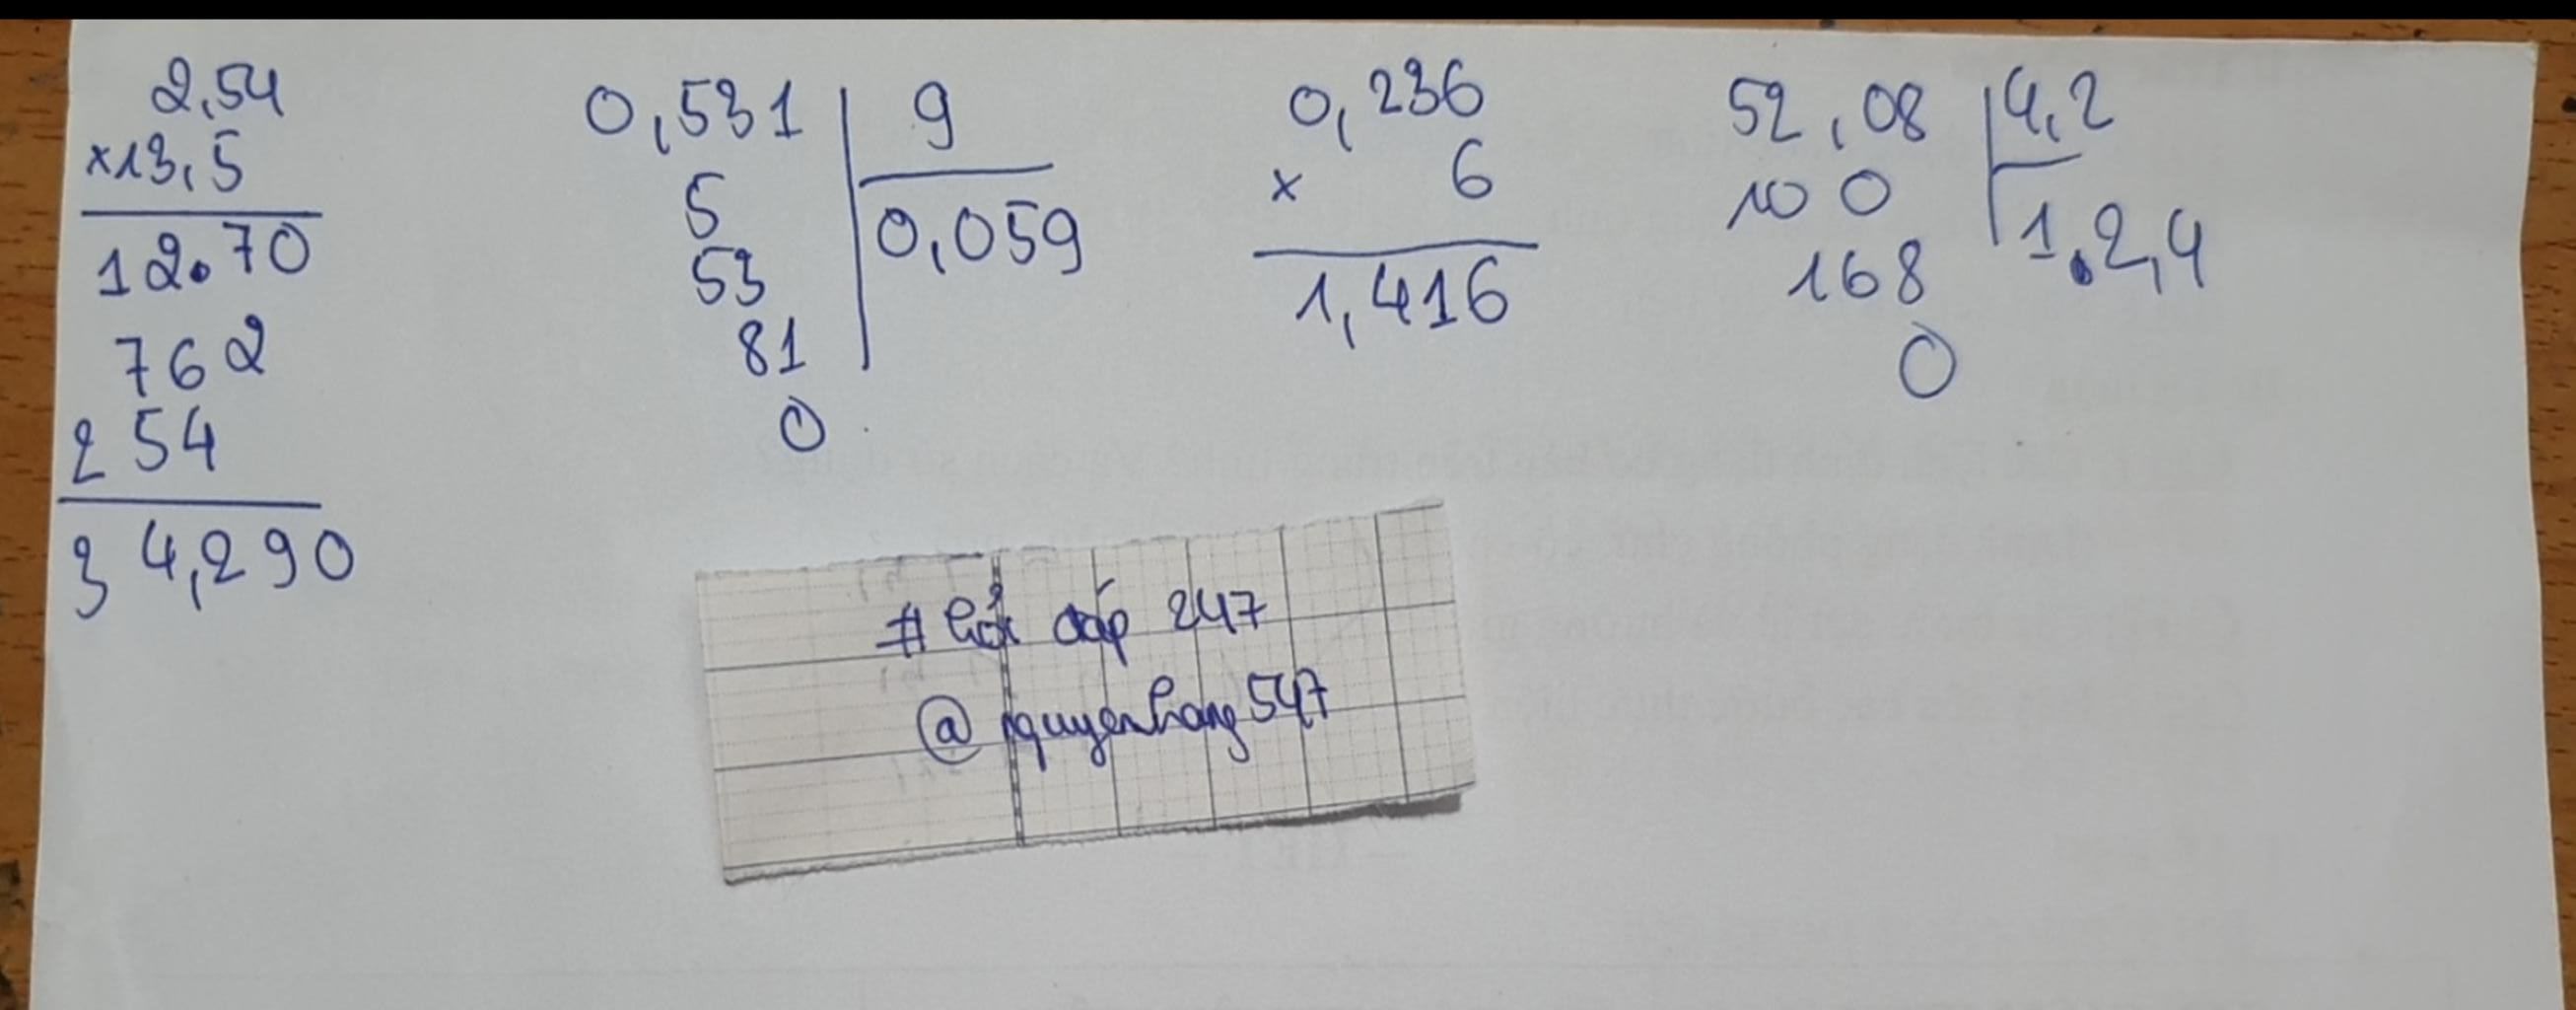 2,54
×13,5
12.70
762
254
34,290
0,531 9
5 0,059
53
81
0
0,236
× 6
1,416
52,08 4,2
10 0 1.2,4
168
0
#hỏi đáp 247
@nguyenhang547